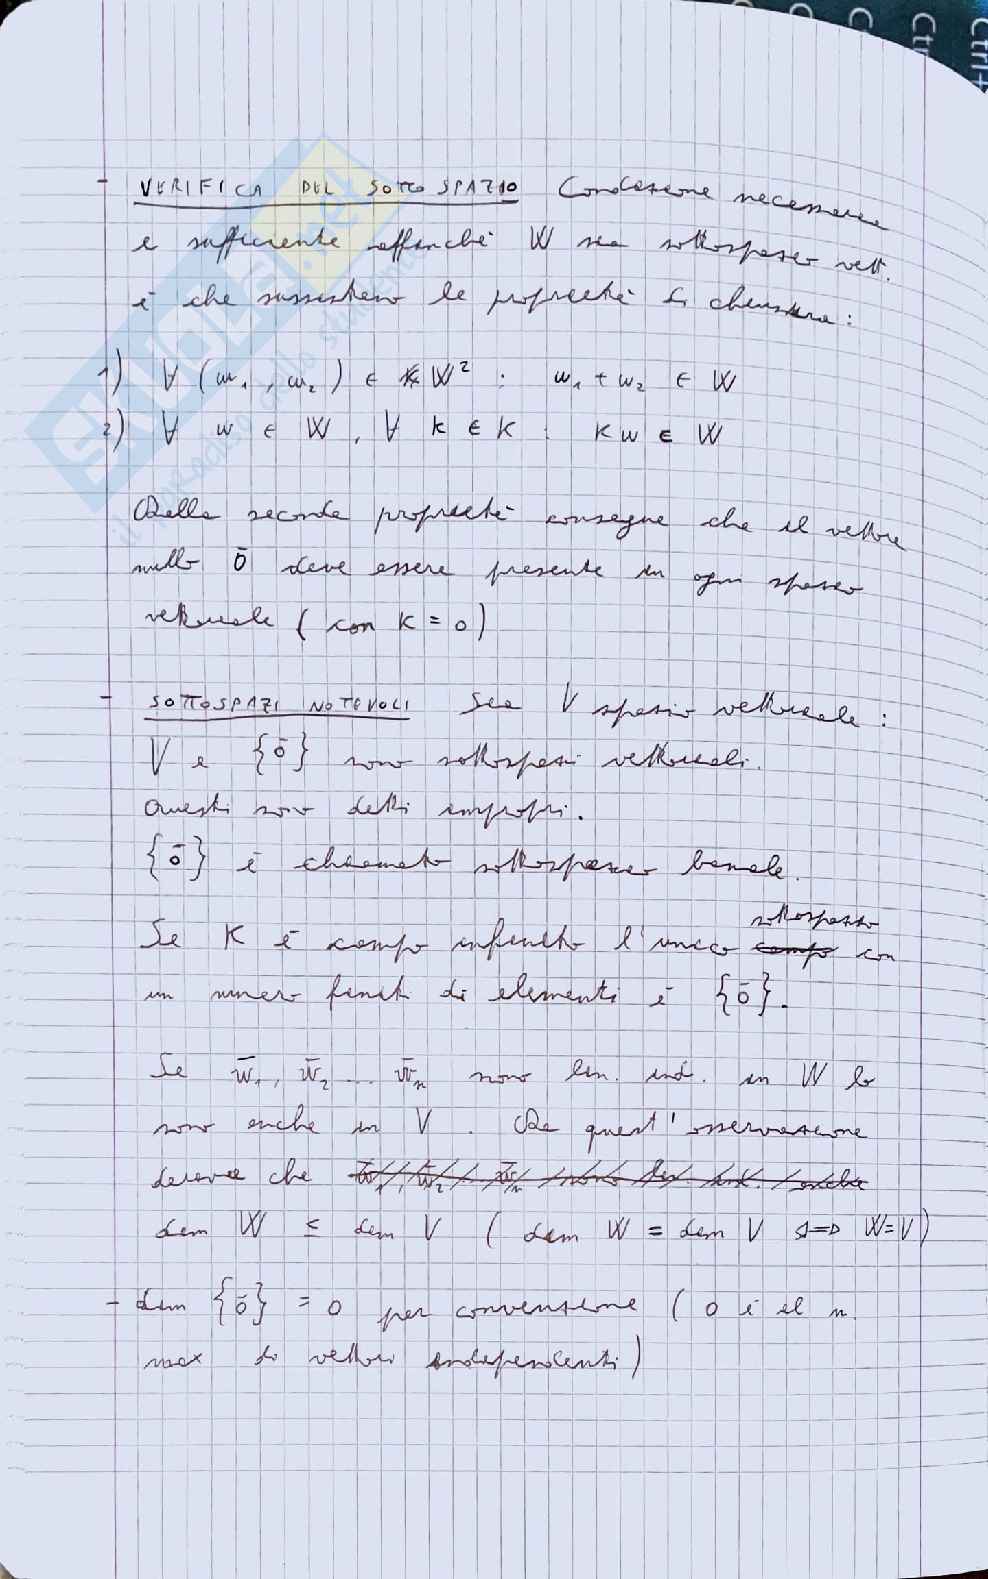 Ctrl+
- VERIFICA DEL SOTTOSPAZIO Condizione necessaria
e sufficiente affinché W sia sottospazio vett.
è che sussistano le proprietà di chiusura:
1) ∀ (w₁, w₂) ∈ W² : w₁ + w₂ ∈ W
2) ∀ w ∈ W, ∀ k ∈ K : kw ∈ W
Dalla seconda proprietà consegue che il vettore
nullo ō deve essere presente in ogni spazio
vettoriale (con K = 0)
- SOTTOSPAZI NOTEVOLI Sia V spazio vettoriale :
V e {ō} sono sottospazi vettoriali.
Questi sono detti impropri.
{ō} è chiamato sottospazio banale.
sottospazio
Se K è campo infinito l'unico campo con
un numero finit di elementi è {ō}.
Se w̄₁, w̄₂ ... w̄ₙ sono lin. ind. in W lo
sono anche in V. Da quest'osservazione
deriva che w̄₁, w̄₂, ... w̄ₙ sono lin. ind. anche
dim W ≤ dim V (dim W = dim V <=> W=V)
- dim {ō} = 0 per convenzione (0 è il n.
max di vettori indipendenti)
SKUOLA.net